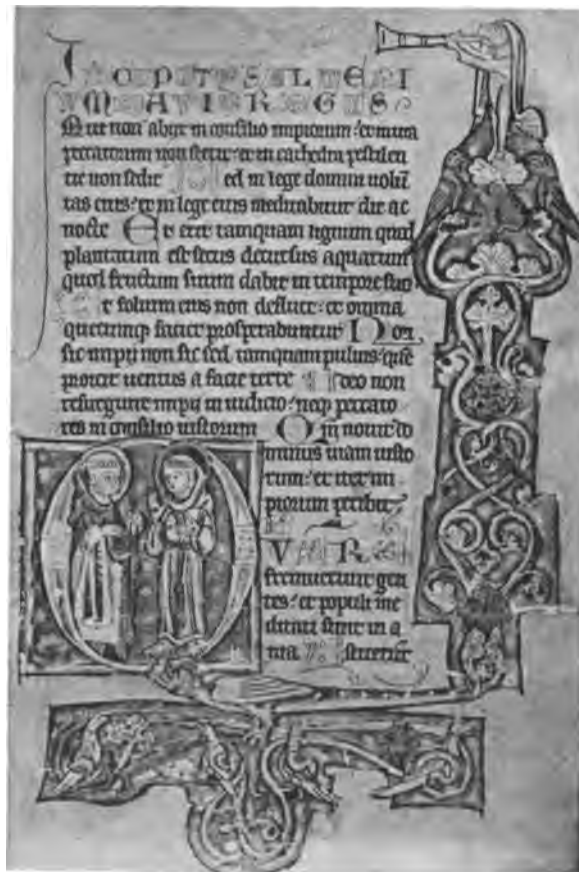 INCIPIT PSALTERI
VM DAVID REGIS
Qui non abijt in consilio impiorum : et in uia
peccatorum non stetit : et in cathedra pestilen
tie non sedit Sed in lege domini uolū
tas eius : et in lege eius meditabitur die ac
nocte Et erit tamquam lignum quod
plantatum est secus decursus aquarum
quod fructum suum dabit in tempore suo
Et folium eius non defluet : et omnia
quecumqꝫ faciet prosperabuntur Non
sic impii non sic sed tamquam puluis quē
proicit uentus a facie terre Ideo non
resurgunt impii in iudicio : neqꝫ peccato
res in consilio iustorum Qm̄ nouit do
minus uiam iusto
rum : et iter im
piorum peribit
fremuerunt gen
tes : et populi me
ditati sunt in a
nia